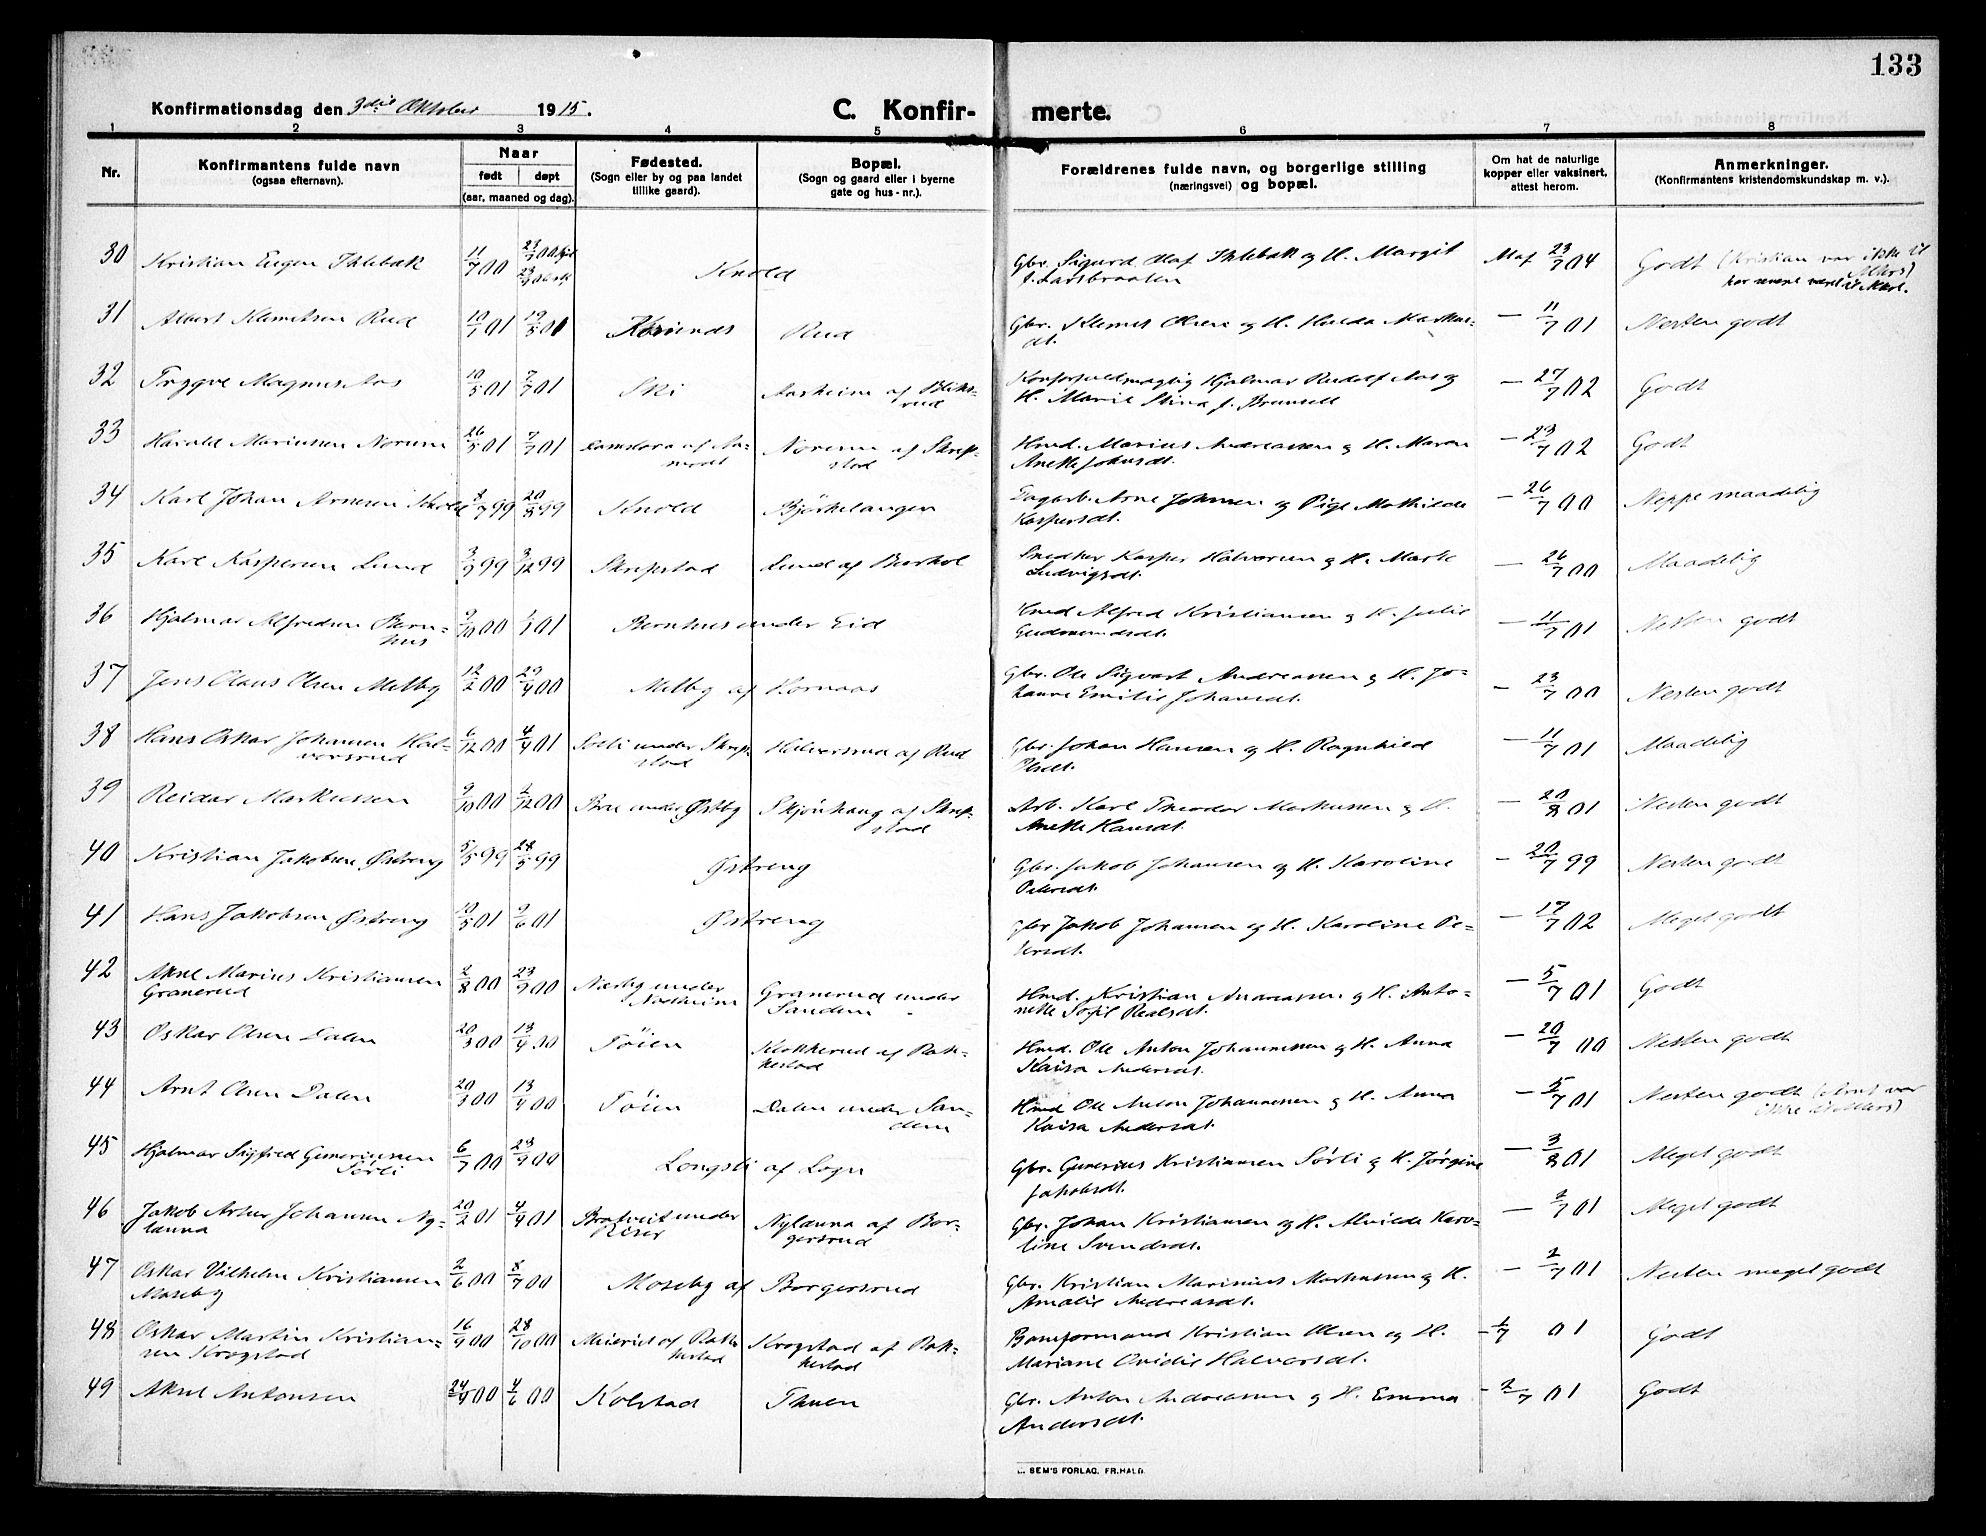 133
Konfirmationsdag den 3die Oktober 1915.
C. Konfir- merte.
1 2 3 4 5 6 7 8
Nr.
Konfirmantens fulde navn
(ogsaa efternavn).
Naar
født døpt
(aar, maaned og dag).
Fødested.
(Sogn eller by og paa landet
tillike gaard).
Bopæl.
(Sogn og gaard eller i byerne
gate og hus-nr.).
Forældrenes fulde navn, og borgerlige stilling
(næringsvei) og bopæl.
Om hat de naturlige
kopper eller vaksinert,
attest herom.
Anmerkninger.
(Konfirmantens kristendomskundskap m. v.).
30 Kristian Eugen Ihlebæk 11/7 00 Knold Gbr. Sigurd Olaf Ihlebæk og H. Margit 23/7 04 Godt (Kristian var ikke til
f. Larsbraaten
31 Albert Klemetsen Rud 10/7 01 19/5 01 Rud Gbr. Klemet Olsen og H. Hulda Markus- — 11/7 01 Nesten godt
dt.
32 Trygve Magnus Aas 10/5 01 7/7 01 Ski Aasheim af Bliks- Hjalmar Rudolf Aas og — 27/7 02 Godt
rud H. Marie Stina f. Brunsell
33 Harald Mariussen Norum 26/5 01 7/7 01 Norum af Skrep- Hmd. Marius Andreassen og H. Maren — 23/7 02 Godt
stad Anette Johnsdt.
34 Karl Johan Arnesen Knold 99 20/8 99 Knold Bjørkelangen Dagarb. Arne Johnsen og Pige Mathilde — 26/7 00 Neppe maadelig
Kaspersdt.
35 Karl Kaspersen Lund 3/9 99 3/12 99 Skrepstad Lund af Snedker Kasper Halvorsen og H. Marte — 26/7 00 Maadelig
Ludvigsdt.
36 Hjalmar Alfredsen Bern- 9/10 00 1/1 01 Bernhus under Eid Hmd Alfred Kristiansen og H. Julie — 11/7 01 Nesten godt
hus Gudmundsdt.
37 Jens Claus Olsen Melby 12/2 00 29/4 00 Melby af Hornaas Gbr. Ole Sigvart Andreassen og H. Jo- — 23/7 00 Nesten godt
hanne Emilie Johansdt.
38 Hans Oskar Johansen Hal- 6/12 00 4/4 01 under Skrep- Halvorsrud af Rud Gbr. Johan Hansen og H. Ragnhild — 11/7 01 Maadelig
vorsrud stad Olsdt.
39 Reidar Markussen 9/10 00 2/12 00 under Østby Skjønhaug af Skrep- Arb. Karl Theodor Markussen og H. — 20/8 01 Nesten godt
stad Anette Hansdt.
40 Kristian Jakobsen Østreng 5/5 99 28/5 99 Østreng Gbr. Jakob Johansen og H. Karoline — 20/7 99 Nesten godt
Petersdt.
41 Hans Jakobsen Østreng 10/5 01 9/6 01 Østreng Gbr Jakob Johansen og H. Karoline Pe- — 17/7 02 Meget godt
tersdt.
42 Aksel Marius Kristiansen 2/8 00 23/9 00 Næsby under Granerud under Hmd. Kristian Andreassen og H. Anto- — 5/7 01 Godt
Granerud Sandem nette Sofie
43 Oskar Olsen Dalen 20/3 00 13/4 00 Tøien Klokkerud af Rak- Hmd. Ole Anton Johannessen og H. Anna — 20/7 00 Nesten godt
kestad Kaisa Andersdt.
44 Arnt Olsen Dalen 20/3 00 13/4 00 Tøien Dalen under San- Hmd Ole Anton Johannessen og H. Anna — 5/7 01 Nesten godt (Arnt var
dem Kaisa Andersdt. ikke til Mars)
45 Hjalmar Sigfred Guneriussen 6/7 00 23/9 00 Longsli af Gbr. Gunerius Kristiansen Sørli og H. Jørgine — 3/8 01 Meget godt
Sørli Jakobsdt.
46 Jakob Artur Johansen Ny- 20/2 01 4/4 01 Bratveit under Nylænna af Bor- Gbr. Johan Kristiansen og H. Alvilde Karo- — 2/7 01 Meget godt
lænna gersrud line Svendsdt.
47 Oskar Vilhelm Kristiansen 2/6 00 8/7 00 Moseby af Borgersrud Gbr. Kristian Marinius Markussen og H. — 2/7 01 Nesten meget godt
Moseby Amalie Andreasdt.
48 Oskar Martin Kristian- 16/9 00 28/10 00 Meieriet af Rak- Krogstad af Rak- Baneformand Kristian Olsen og H. 01 Godt
sen Krogstad kestad kestad Mariane Ovidie Halvorsdt.
49 Aksel Antonsen 24/4 00 4/6 00 Kolstad Thuen Gbr. Anton Andreassen og H. Emma - 2/7 01 Godt
Andersdt.
SEM'S FORLAG, FR.HALD.